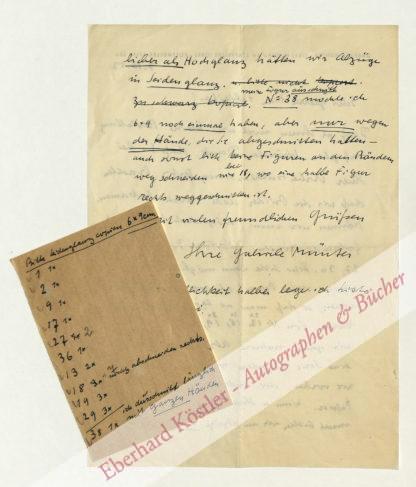 lieber als Hochglanz hätten wir Abzüge
in Seidenglanz. u. bitte nicht
N=38 möchte ich
6+9 noch einmal haben, aber nur wegen
der Hände, die Sie abgeschnitten hatten –
auch sonst bitte keine Figuren an den Rändern
wegschneiden wie bei 18, wo eine halbe Figur
rechts weggeschnitten ist.
Mit vielen freundlichen Grüßen
Ihre Gabriele Münter
halber lege ich
Bitte seidenglanz copieren 6x9cm
1 1x
2 1x
9 1x
17 1x
27 2
36 1x
13 2x
18 3x abschneiden rechts
19 3x
29 3x
38 1x mit ganzen Händen
Eberhard Köstler - Autographen & Bücher